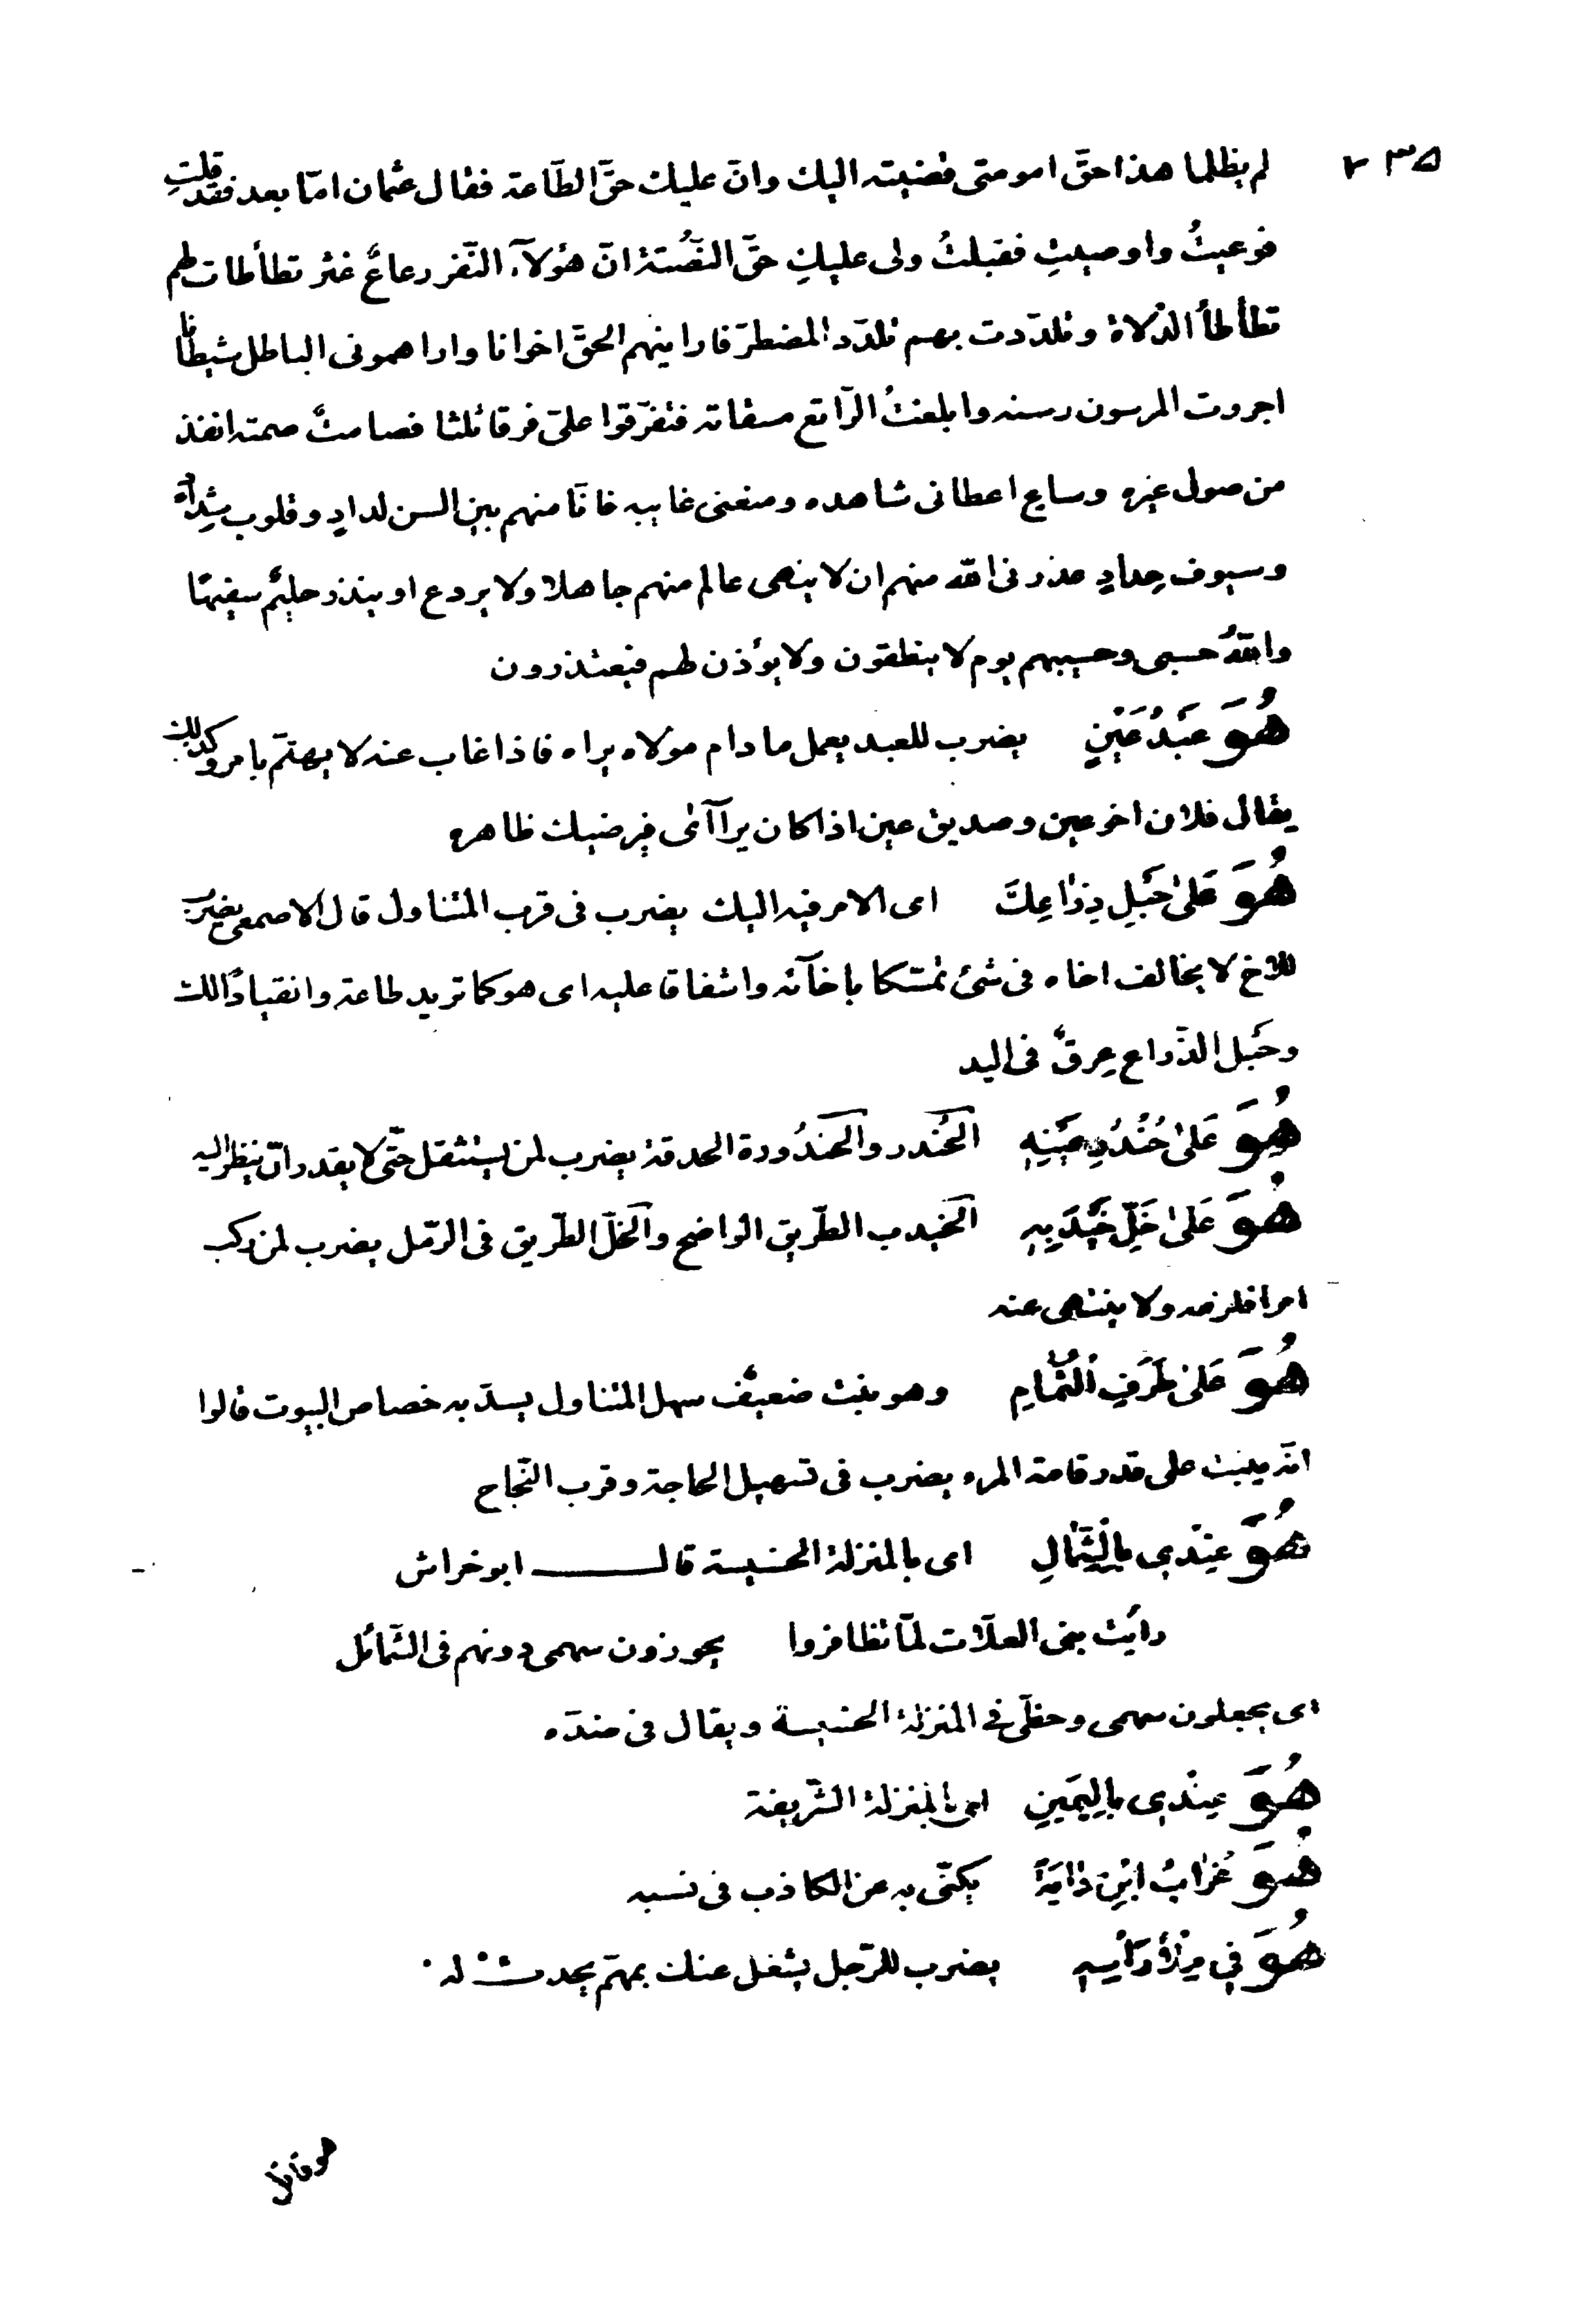 ٧٣٥
لم يظلما هذا حقّ امومتى قضيته اليك وانّ عليك حقّ الطّاعة فقال عثمان امّا بعد فقد قلتِ
فوعيتُ واوصيتِ فقبلتُ ولى عليكِ حقّ النّصُتة انّ هؤلآء النّفر رعاعٌ غثر تطأطات لهم
تطأطأ الدّلاة وتلدّدت بهم تلدّد المضطرّ فارا ينهم الحقّ اخوانا واراهمونى الباطل شيطانا
اجررت المرسون رسنه وابلغتُ الرّاتع مسقاته فتفرّقوا علىّ فرقا ثلثا فصامتٌ صمته انفذ
من صول غيره وساع اعطانى شاهده ومنعنى غايبه فانّا منهم بين السن لدادٍ وقلوب شدادٍ
وسيوف حِدادٍ عذرنى الله منهم ان لا ينهى عالم منهم جاهلا ولا يردع او ينذر حليمٌ سفيهًا
واللهُ حسبى وحسيبهم يوم لا ينطقون ولا يؤذن لهم فيعتذرون
هُوَ عَبْدُ عَيْنٍ يضرب للعبد يعمل ما دام مولاه يراه فاذا غاب عنه لا يهتمّ بامره وكذلك
يقال فلان اخو عين وصديق عين اذا كان يرآآئى فيرضيك ظاهره
هُوَ عَلىٰ حَبْلِ ذِرٰاعِكَ اى الامر فيه اليك يضرب فى قرب المتناول قال الاصمعى يضرب
للاخ لا يخالف اخاه فى شئ تمسّكا باخآئه واشفاقا عليه اى هو كما تريد طاعة وانقيادًا لك
وحَبل الذّراع عِرقٌ فى اليد
هُوَ عَلىٰ حُنْدُرِ عَيْنِهِ الحُندر والحَندُورة الحدقة يضرب لمن يستثقل حتّى لا يقدر ان ينظر اليه
هُوَ عَلىٰ خَلِّ خَيْدَبِهِ الخَيدب الطّريق الواضح والخَلّ الطّريق فى الرّمل يضرب لمن ركب
امرا فلزمه ولا ينتهى عنه
هُوَ عَلىٰ طَرَفِ الثُّمَامِ وهو نبت ضعيفٌ سهل المتناول يسدّ به خصاص البيوت قالوا
انّه ينبت على قدر قامة المرء يضرب فى تسهيل الحاجة وقرب النّجاح
هُوَ عِنْدِي بِالشِّمٰالِ اى بالمنزلة الخسيسة قال ابو خراش
رايت بنى العلّات لمّا تظافروا يحوزون سهمى دونهم فى الشّمائل
اى يجعلون سهمى وحظّى فى المنزلة الخسيسة ويقال فى ضدّه
هُوَ عِنْدِي بِاليَمينِ اى بالمنزلة الشّريفة
هُوَ غُرٰابُ ابْنِ دٰايَةً يكنّى به عن الكاذب فى نسبه
هُوَ فِي مِلْأِ رَأْسِهِ يضرب للرّجل يشغل عنك بمهمّ يحدث له